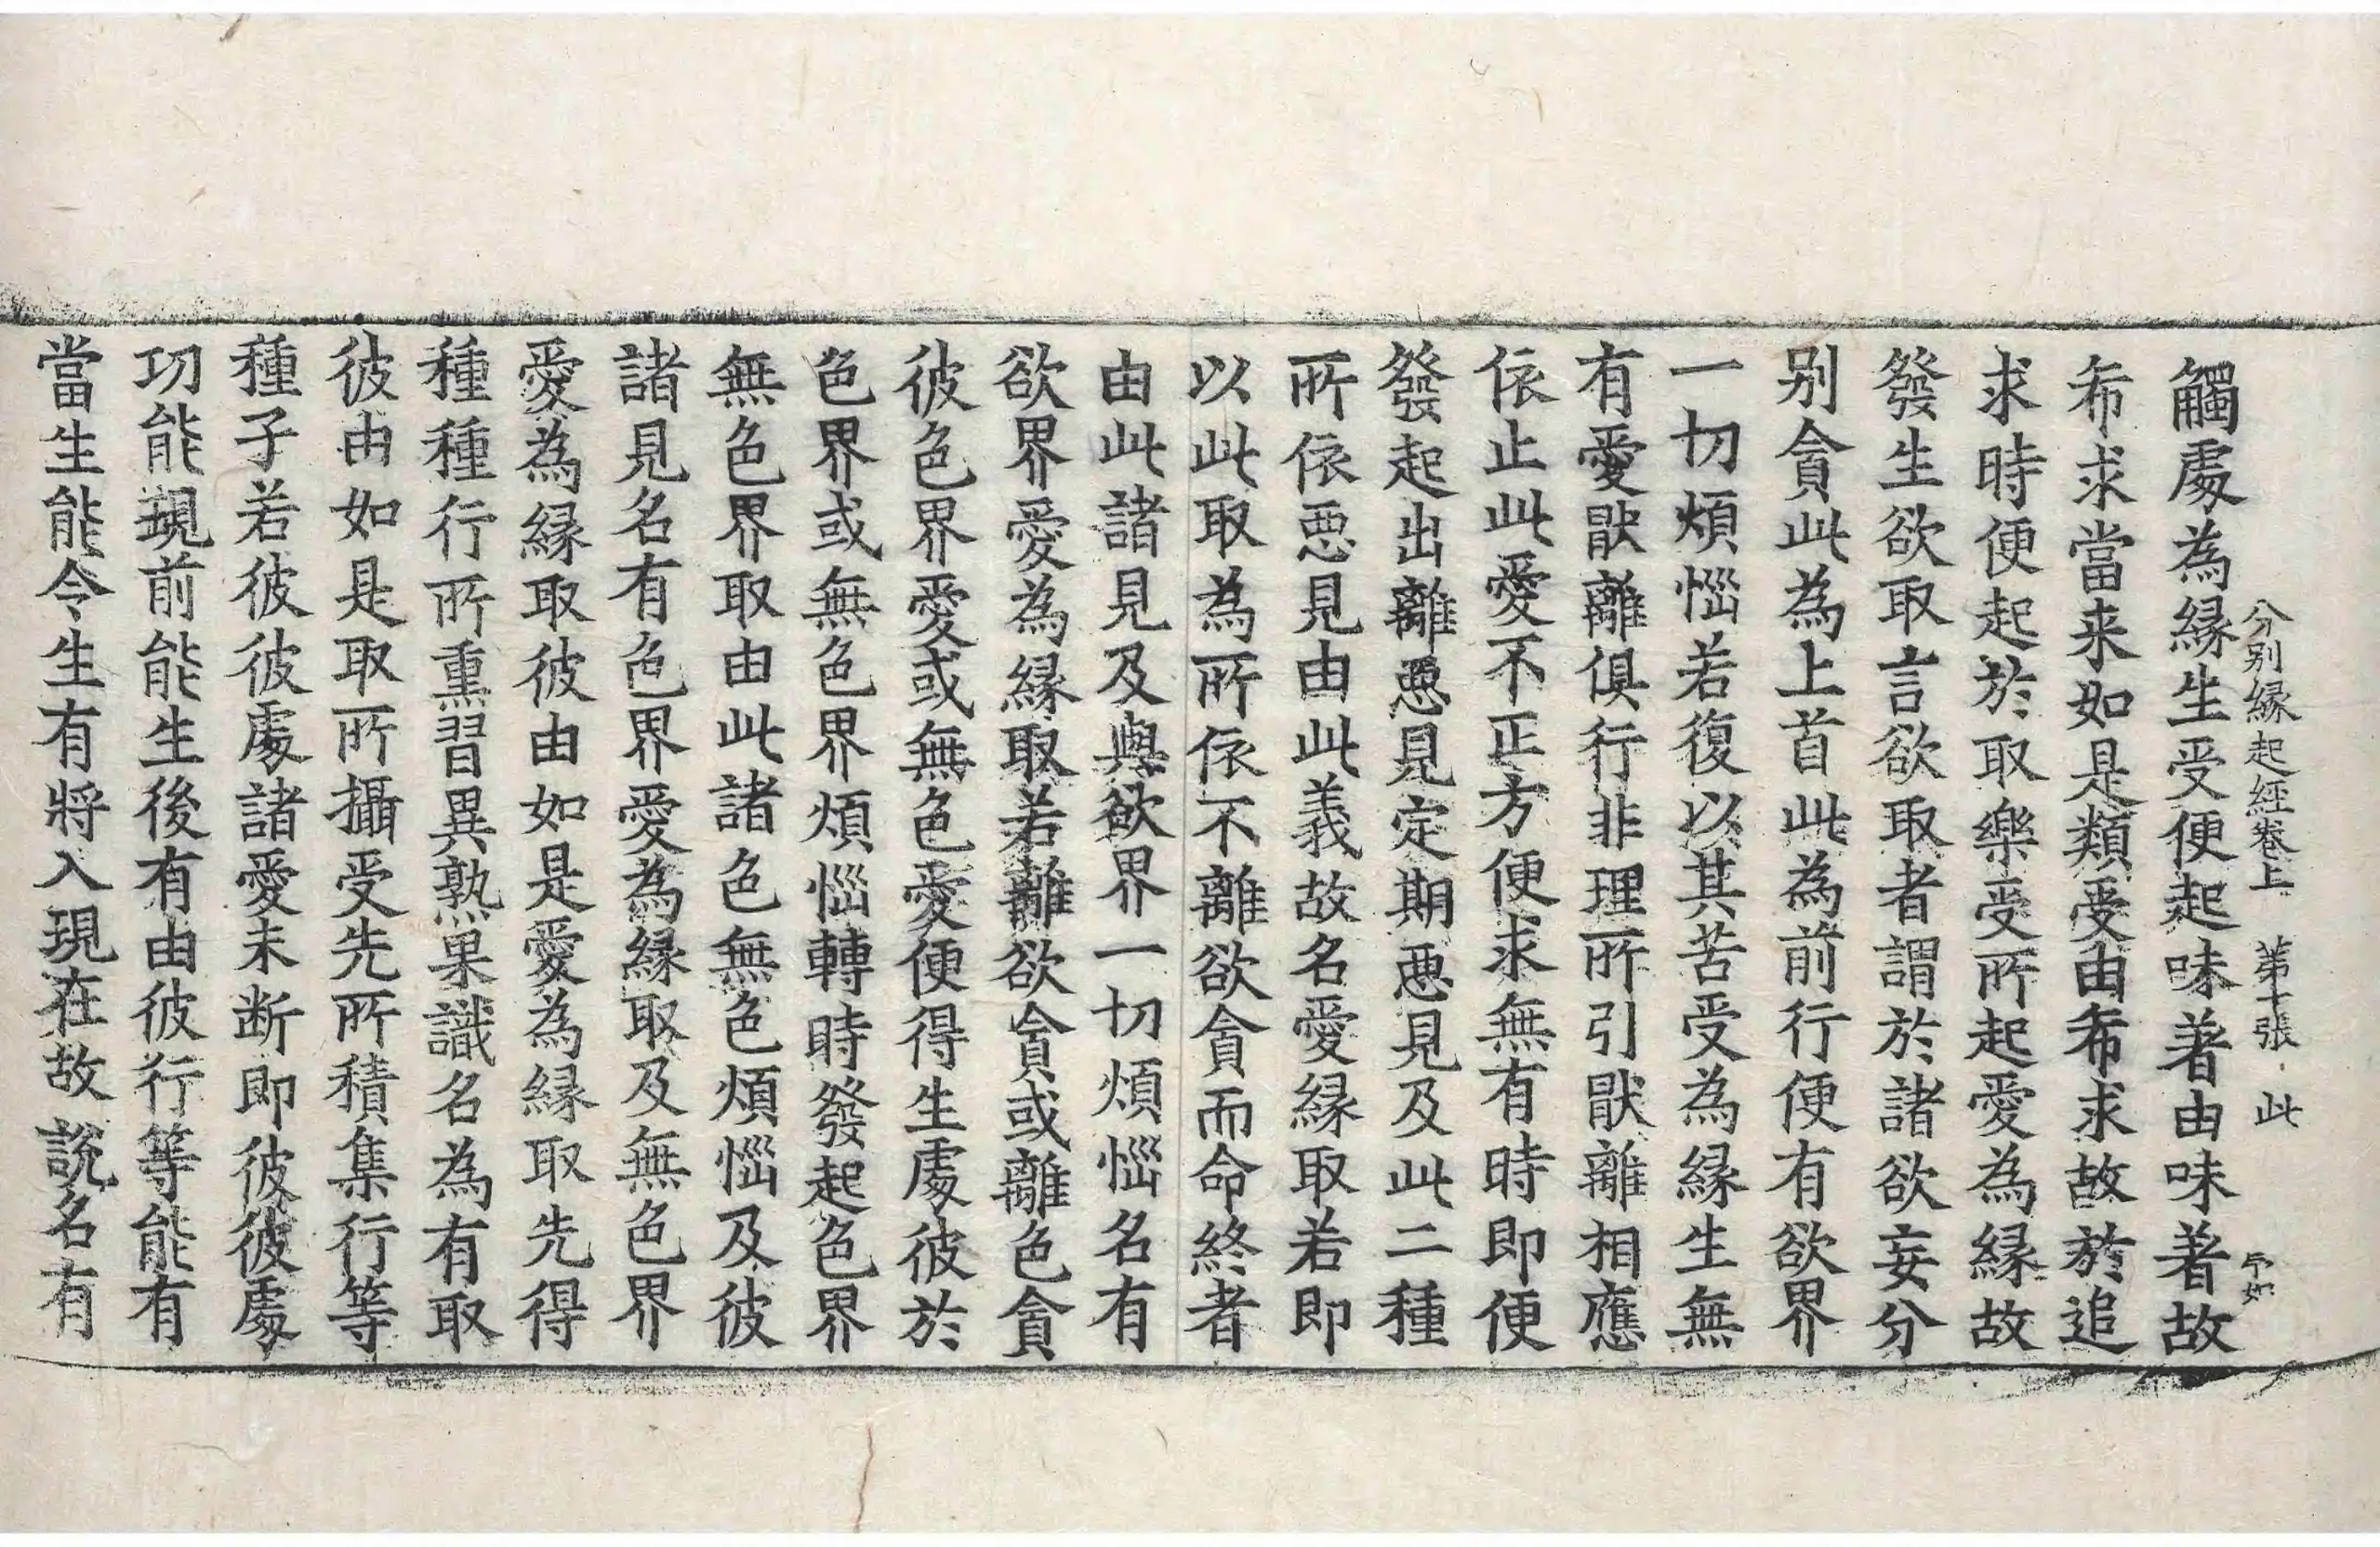 分别縁起經卷上 第十張 此
觸處為縁生受便起味著由味著故
希求當来如是類受由希求故於追
求時便起於取樂受所起愛為縁故
發生欲取言欲取者謂於諸欲妄分
别貪此為上首此為前行便有欲界
一切煩惱若復以其苦受為縁生無
有愛猒離俱行非理所引猒離相應
依止此愛不正方便求無有時即便
發起出離惡見定期惡見及此二種
所依惡見由此義故名愛縁取若即
以此取為所依不離欲貪而命終者
由此諸見及與欲界一切煩惱名有
欲界愛為縁取若離欲貪或離色貪
彼色界愛或無色愛便得生處彼於
色界或無色界煩惱轉時發起色界
無色界取由此諸色無色煩惱及彼
諸見名有色界愛為縁取及無色界
愛為縁取彼由如是愛為縁取先得
種種行所熏習異熟果識名為有取
彼由如是取所攝受先所積集行等
種子若彼彼處諸愛未断即彼彼處
功能現前能生後有由彼行等能有
當生能令生有將入現在故說名有